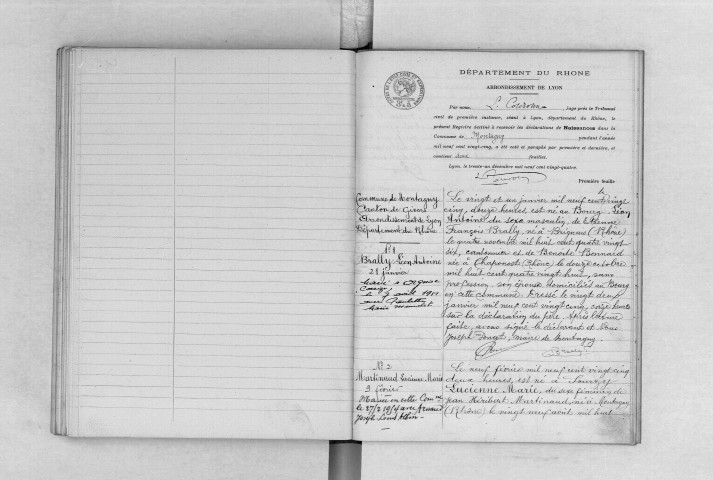 DÉPARTEMENT DU RHONE
ARRONDISSEMENT DE LYON
Par nous, Juge près le Tribunal
civil de première instance, séant à Lyon, département du Rhône, le
présent Registre destiné à recevoir les déclarations de Naissances dans la
Commune de Montagny pendant l'année
mil neuf cent vingt-cinq, a été coté et paraphé par première et dernière, et
contient feuilles.
Lyon, le trente-un décembre mil neuf cent vingt-quatre.
Première feuille
Commune de Montagny
Canton de Givors
Arrondissement de Lyon
Département du Rhône
N° 1
Brally Léon Antoine
21 janvier
Marié à
le avril
Le vingt et un janvier mil neuf cent vingt
cinq, douze heures, est né au Bourg Léon
Antoine du sexe masculin, de Etienne
François Brally, né à Brignais (Rhône)
le quatre novembre mil huit cent quatre vingt
six, cantonnier et de Benoite Bonnard
née à Chaponost (Rhône) le douze octobre
mil huit cent quatre vingt huit, sans
profession, son épouse, domiciliés au Bourg
en cette commune. Dressé le vingt deux
janvier mil neuf cent vingt cinq, heures
sur la déclaration du père. Après lecture
faite, avons signé le déclarant et Nous
Joseph maire de Montagny.
Brally
N° 2
Martinaud Lucienne Marie
9 février
Mariée en cette Com
le 27/2 avec
Joseph Louis
Le neuf février mil neuf cent vingt cinq
deux heures, est né à
Lucienne Marie, du sexe féminin, de
Jean Héribert Martinaud, né à Montagny
(Rhône) le vingt neuf août mil huit